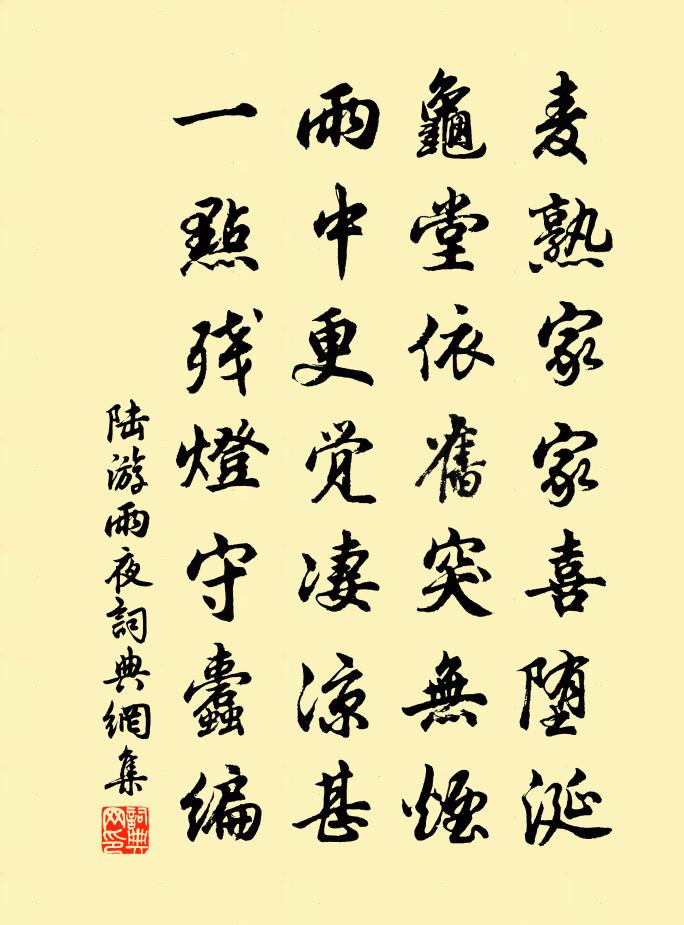 麦熟家家喜堕涎
龜堂依舊突無煙
雨中更觉凄涼甚
一點残燈守蠹编
陆游雨夜詞典網集
詞典网印